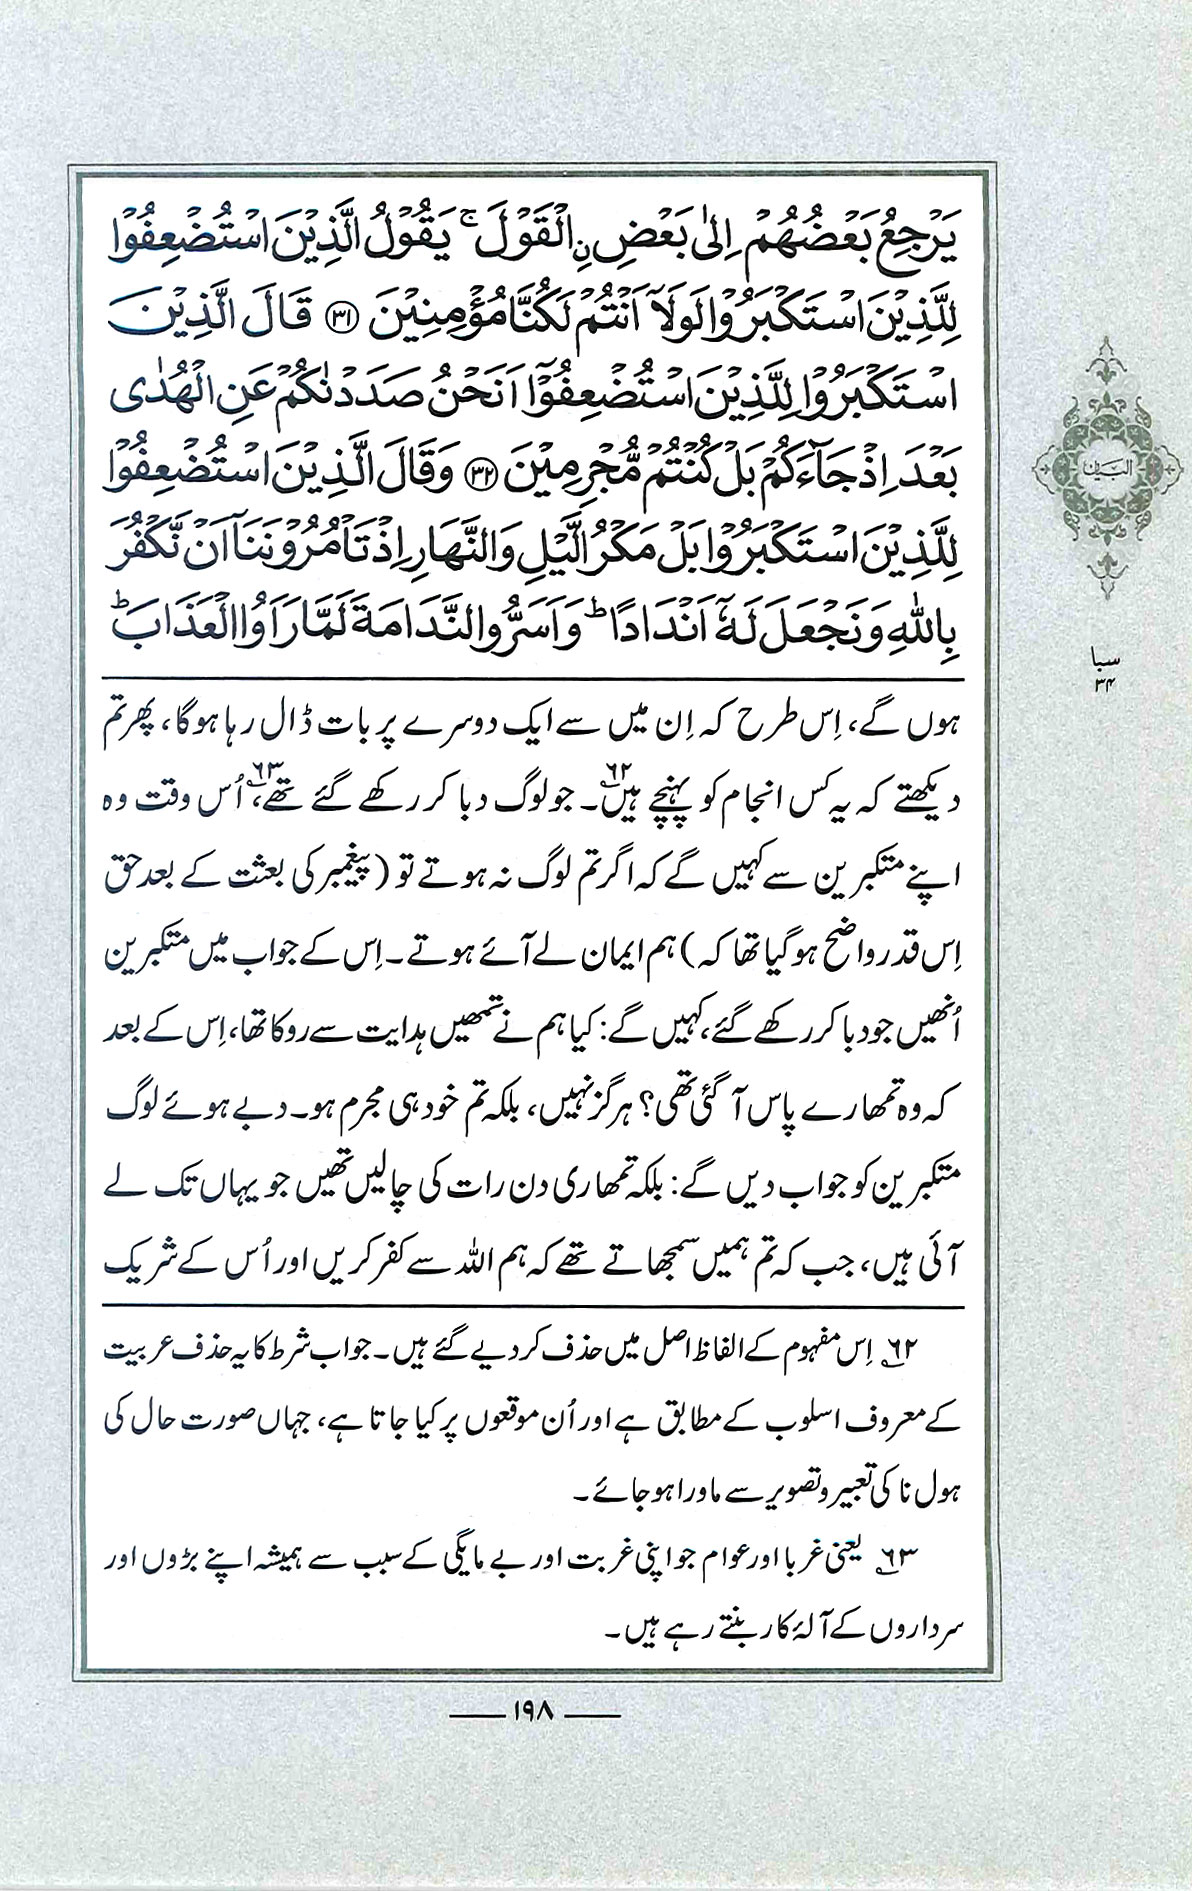 يَرْجِعُ بَعْضُهُمْ اِلٰى بَعْضِ نِ الْقَوْلَ ۚ يَقُوْلُ الَّذِيْنَ اسْتُضْعِفُوْا
لِلَّذِيْنَ اسْتَكْبَرُوْا لَوْلَآ اَنْتُمْ لَكُنَّا مُؤْمِنِيْنَ ﴿۳۱﴾ قَالَ الَّذِيْنَ
اسْتَكْبَرُوْا لِلَّذِيْنَ اسْتُضْعِفُوْٓا اَنَحْنُ صَدَدْنٰكُمْ عَنِ الْهُدٰى
بَعْدَ اِذْ جَآءَكُمْ بَلْ كُنْتُمْ مُّجْرِمِيْنَ ﴿۳۲﴾ وَقَالَ الَّذِيْنَ اسْتُضْعِفُوْا
لِلَّذِيْنَ اسْتَكْبَرُوْا بَلْ مَكْرُ الَّيْلِ وَالنَّهَارِ اِذْ تَاْمُرُوْنَنَآ اَنْ نَّكْفُرَ
بِاللّٰهِ وَنَجْعَلَ لَهٗٓ اَنْدَادًا ؕ وَاَسَرُّوا النَّدَامَةَ لَمَّا رَاَوُا الْعَذَابَ ؕ
ہوں گے، اِس طرح کہ اِن میں سے ایک دوسرے پر بات ڈال رہا ہوگا، پھر تم
دیکھتے کہ یہ کس انجام کو پہنچے ہیں۶۲۔ جو لوگ دبا کر رکھے گئے تھے۶۳، اُس وقت وہ
اپنے متکبرین سے کہیں گے کہ اگر تم لوگ نہ ہوتے تو (پیغمبر کی بعثت کے بعد حق
اِس قدر واضح ہوگیا تھا کہ) ہم ایمان لے آئے ہوتے۔ اِس کے جواب میں متکبرین
اُنھیں جو دبا کر رکھے گئے، کہیں گے: کیا ہم نے تمھیں ہدایت سے روکا تھا، اِس کے بعد
کہ وہ تمھارے پاس آ گئی تھی؟ ہرگز نہیں، بلکہ تم خود ہی مجرم ہو۔ دبے ہوئے لوگ
متکبرین کو جواب دیں گے: بلکہ تمھاری دن رات کی چالیں تھیں جو یہاں تک لے
آئی ہیں، جب کہ تم ہمیں سمجھاتے تھے کہ ہم اللہ سے کفر کریں اور اُس کے شریک
۶۲ اِس مفہوم کے الفاظ اصل میں حذف کر دیے گئے ہیں۔ جواب شرط کا یہ حذف عربیت
کے معروف اسلوب کے مطابق ہے اور اُن موقعوں پر کیا جاتا ہے، جہاں صورت حال کی
ہول ناکی تعبیر و تصویر سے ماورا ہو جائے۔
۶۳ یعنی غربا اور عوام جو اپنی غربت اور بے مایگی کے سبب سے ہمیشہ اپنے بڑوں اور
سرداروں کے آلۂ کار بنتے رہے ہیں۔
البیان
سبا
۳۴
۱۹۸